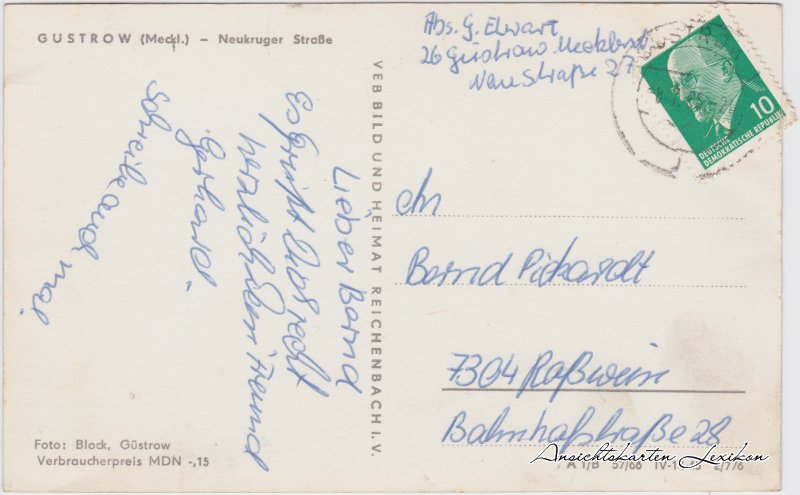 GÜSTROW (Meckl.) – Neukruger Straße
Lieber Bernd
Es grüßt Dich recht
herzlich Dein Freund
Gerhard.
Schreibe auch mal
Foto: Block, Güstrow
Verbraucherpreis MDN -,15
VEB BILD UND HEIMAT REICHENBACH i. V.
Abs. G. Elwart
26 Güstrow Mecklenb
Neue Straße 27
10
DEUTSCHE
DEMOKRATISCHE REPUBLIK
An
Bernd Pickardt
7304 Roßwein
Bahnhofstraße 28
A 1/B 57/66 IV-1
Ansichtskarten Lexikon